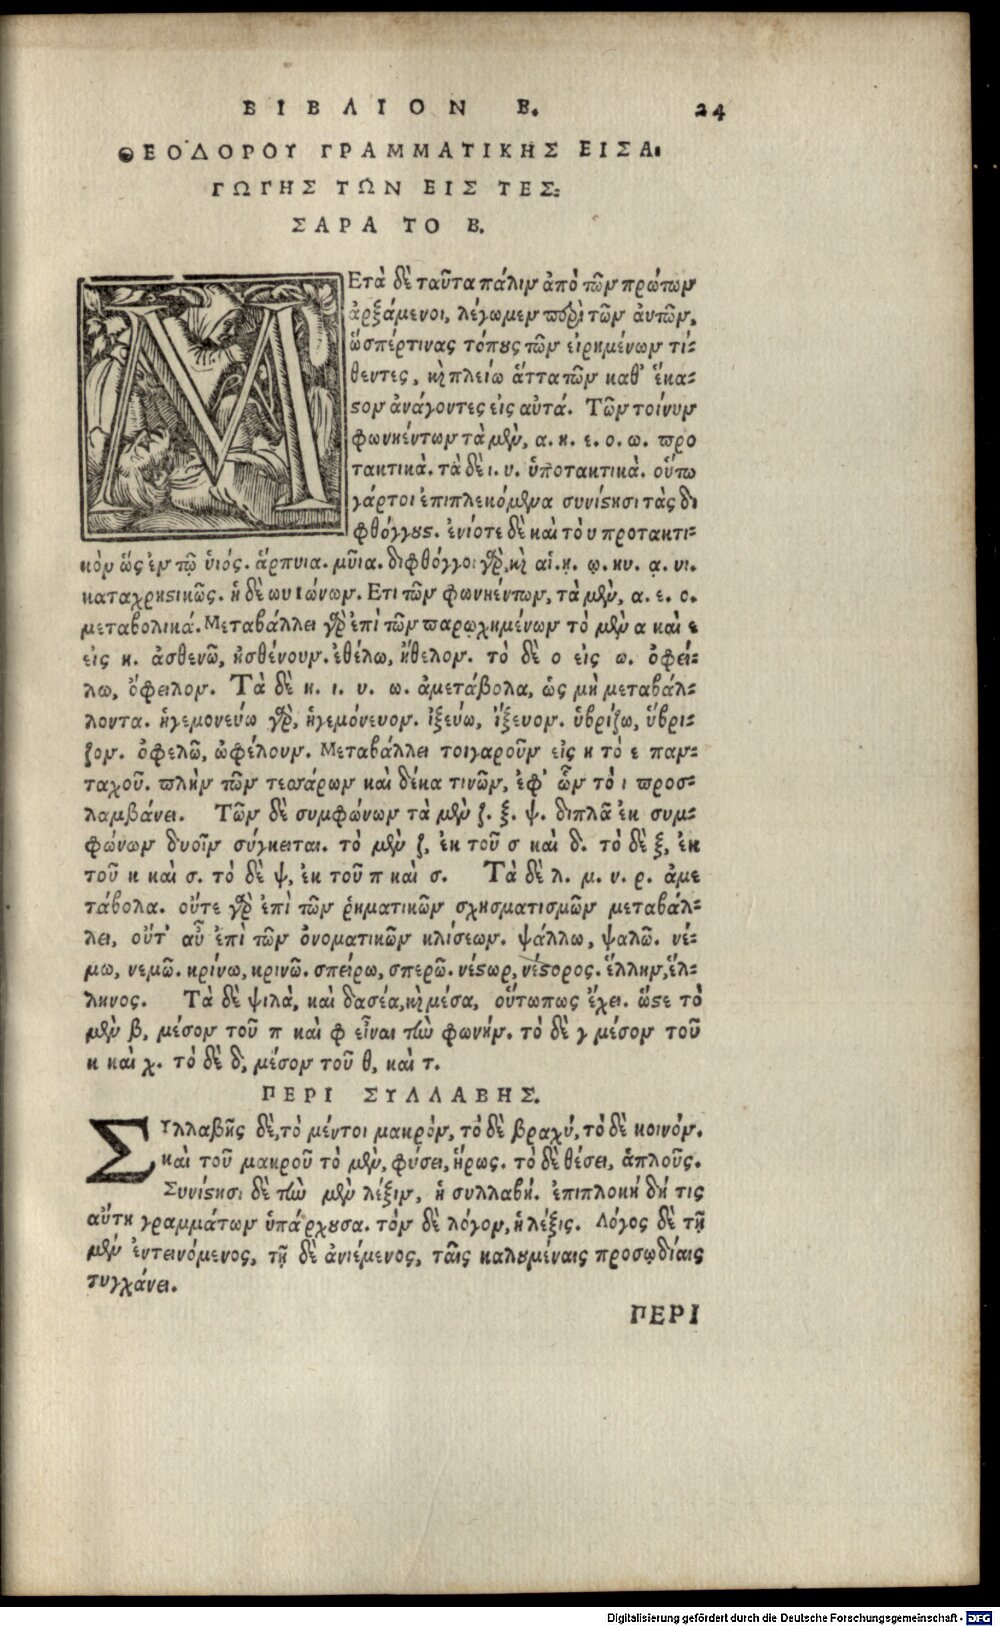 ΒΙΒΛΙΟΝ Β. 24
ΘΕΟΔΟΡΟΥ ΓΡΑΜΜΑΤΙΚΗΣ ΕΙΣΑ.
ΓΩΓΗΣ ΤΩΝ ΕΙΣ ΤΕΣ:
ΣΑΡΑ ΤΟ Β.
ΜΕτὰ δὲ ταῦτα πάλιν ἀπὸ τῶν πρώτων
ἀρξάμενοι, λέγωμεν περὶ τῶν ἀυτῶν,
ὥσπέρτινας τόπους τῶν εἰρημένων τί-
θεντες, κὶ πλείω ἅττα τῶν καθ' ἕκα-
στον ἀνάγοντες εἰς αὐτά. Τῶν τοίνυν
φωνηέντων τὰ μὲν, α. η. ε. ο. ω. προ
τακτικά. τὰ δὲ ι. υ. ὑποτακτικά. οὕτω
γάρτοι ἐπιπλεκόμενα συνίστησι τὰς δι
φθόγγους. ἐνίοτε δὲ καὶ τὸ υ προτακτι-
κὸν ὥς ἐν τῷ ὑιός. ἅρπυια. μῦια. δίφθόγγοι γὰρ, κὶ αἱ. ῃ. ῳ. ηυ. ᾳ. υι.
καταχρηστικῶς. ἡ δὲ ωυ ἰώνων. Ετι τῶν φωνηέντων, τὰ μὲν, α. ε. ο.
μεταβολικά. Μεταβάλλει γὰρ ἐπὶ τῶν παρῳχημένων τὸ μὲν α καὶ ε
εἰς η. ἀσθενῶ, ἠσθένουν. ἐθέλω, ἤθελον. τὸ δὲ ο εἰς ω. ὀφεί-
λω, ὄφειλον. Τὰ δὲ η. ι. υ. ω. ἀμετάβολα, ὡς μὴ μεταβάλ-
λοντα. ἡγεμονεύω γὰρ, ἡγεμόνευον. ἰξεύω, ἴξευον. ὑβρίζω, ὕβρι-
ζον. ὀφελῶ, ὠφέλουν. Μεταβάλλει τοιγαροῦν εἰς η τὸ ε παν-
ταχοῦ. πλὴν τῶν τεσσάρων καὶ δέκα τινῶν, ἐφ' ὧν τὸ ι προσ-
λαμβάνει. Τῶν δὲ συμφώνων τὰ μὲν ζ. ξ. ψ. διπλᾶ ἐκ συμ-
φώνων δυοῖν σύγκειται. τὸ μὲν ζ, ἐκ τοῦ σ καὶ δ. τὸ δὲ ξ, ἐκ
τοῦ κ καὶ σ. τὸ δὲ ψ, ἐκ τοῦ π καὶ σ. Τὰ δὲ λ. μ. ν. ρ. ἀμε
τάβολα. οὔτε γὰρ ἐπὶ τῶν ῥηματικῶν σχησματισμῶν μεταβάλ-
λει, οὔτ' αὖ ἐπὶ τῶν ὀνοματικῶν κλίσεων. ψάλλω, ψαλῶ. νέ-
μω, νεμῶ. κρίνω, κρινῶ. σπείρω, σπερῶ. νέστωρ, νέστορος. ἕλλην, ἕλ-
ληνος. Τὰ δὲ ψιλὰ, καὶ δασέα, κὶ μέσα, οὕτωπως ἔχει. ὥστε τὸ
μὲν β, μέσον τοῦ π καὶ φ εἶναι τὼ φωνήν. τὸ δὲ γ μέσον τοῦ
κ καὶ χ. τὸ δὲ δ, μέσον τοῦ θ, καὶ τ.
ΠΕΡΙ ΣΥΛΛΑΒΗΣ.
ΣΥλλαβῆς δὲ, τὸ μέντοι μακρὸν, τὸ δὲ βραχύ, τὸ δὲ κοινόν.
καὶ τοῦ μακροῦ τὸ μὲν, φύσει, ἥρως. τὸ δὲ θέσει, ἁπλοῦς.
Συνίστησι δὲ τὼ μὲν λέξιν, ἡ συλλαβή. ἐπιπλοκή δή τις
αὕτη γραμμάτων ὑπάρχουσα. τὸν δὲ λόγον, ἡ λέξις. Λόγος δὲ τῇ
μὲν ἐντεινόμενος, τῇ δὲ ἀνιέμενος, ταῖς καλουμέναις προσῳδίαις
τυγχάνει.
ΠΕΡΙ
Digitalisierung gefördert durch die Deutsche Forschungsgemeinschaft - DFG